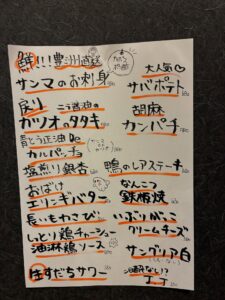 鮮!!!豊洲直送
サンマのお刺身
戻り
ニラ醤油の
カツオのタタキ
青とう正油De
カルパッチョ
塩煎り銀杏
おばけ
エリンギバター
長いもわさび
しっとり鶏チャーシュー
油淋鶏ソース
生すだちサワー
大人気♡
サバポテト
胡麻
カンパチ
鴨のレアステーキ
なんこつ
鉄板焼
いぶりがっこ
クリームチーズ
サングリア白